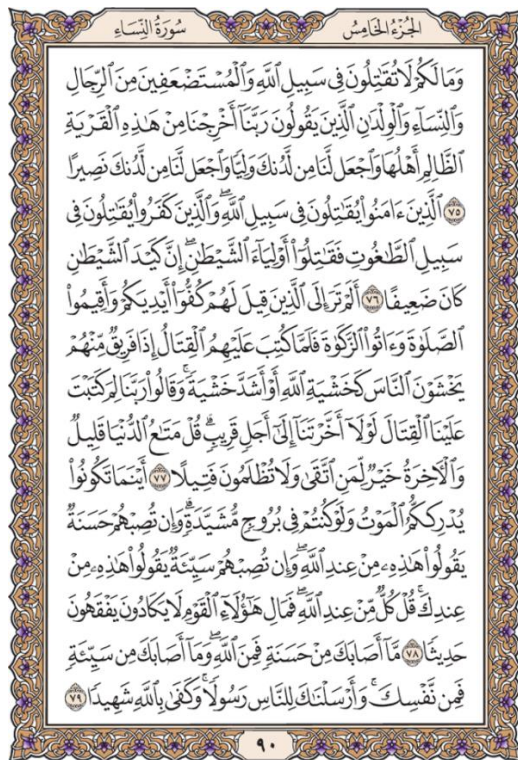 الجُزْءُ الخَامِسُ
سُورَةُ النِّسَاءِ
وَمَا لَكُمْ لَا تُقَٰتِلُونَ فِى سَبِيلِ ٱللَّهِ وَٱلْمُسْتَضْعَفِينَ مِنَ ٱلرِّجَالِ
وَٱلنِّسَآءِ وَٱلْوِلْدَٰنِ ٱلَّذِينَ يَقُولُونَ رَبَّنَآ أَخْرِجْنَا مِنْ هَٰذِهِ ٱلْقَرْيَةِ
ٱلظَّالِمِ أَهْلُهَا وَٱجْعَل لَّنَا مِن لَّدُنكَ وَلِيًّا وَٱجْعَل لَّنَا مِن لَّدُنكَ نَصِيرًا
٧٥ ٱلَّذِينَ ءَامَنُوا۟ يُقَٰتِلُونَ فِى سَبِيلِ ٱللَّهِ ۖ وَٱلَّذِينَ كَفَرُوا۟ يُقَٰتِلُونَ فِى
سَبِيلِ ٱلطَّٰغُوتِ فَقَٰتِلُوٓا۟ أَوْلِيَآءَ ٱلشَّيْطَٰنِ ۖ إِنَّ كَيْدَ ٱلشَّيْطَٰنِ
كَانَ ضَعِيفًا ٧٦ أَلَمْ تَرَ إِلَى ٱلَّذِينَ قِيلَ لَهُمْ كُفُّوٓا۟ أَيْدِيَكُمْ وَأَقِيمُوا۟
ٱلصَّلَوٰةَ وَءَاتُوا۟ ٱلزَّكَوٰةَ فَلَمَّا كُتِبَ عَلَيْهِمُ ٱلْقِتَالُ إِذَا فَرِيقٌ مِّنْهُمْ
يَخْشَوْنَ ٱلنَّاسَ كَخَشْيَةِ ٱللَّهِ أَوْ أَشَدَّ خَشْيَةً ۚ وَقَالُوا۟ رَبَّنَا لِمَ كَتَبْتَ
عَلَيْنَا ٱلْقِتَالَ لَوْلَآ أَخَّرْتَنَآ إِلَىٰٓ أَجَلٍ قَرِيبٍ ۗ قُلْ مَتَٰعُ ٱلدُّنْيَا قَلِيلٌ
وَٱلْـَٔاخِرَةُ خَيْرٌ لِّمَنِ ٱتَّقَىٰ وَلَا تُظْلَمُونَ فَتِيلًا ٧٧ أَيْنَمَا تَكُونُوا۟
يُدْرِككُّمُ ٱلْمَوْتُ وَلَوْ كُنتُمْ فِى بُرُوجٍ مُّشَيَّدَةٍ ۗ وَإِن تُصِبْهُمْ حَسَنَةٌ
يَقُولُوا۟ هَٰذِهِۦ مِنْ عِندِ ٱللَّهِ ۖ وَإِن تُصِبْهُمْ سَيِّئَةٌ يَقُولُوا۟ هَٰذِهِۦ مِنْ
عِندِكَ ۚ قُلْ كُلٌّ مِّنْ عِندِ ٱللَّهِ ۖ فَمَالِ هَٰٓؤُلَآءِ ٱلْقَوْمِ لَا يَكَادُونَ يَفْقَهُونَ
حَدِيثًا ٧٨ مَّآ أَصَابَكَ مِنْ حَسَنَةٍ فَمِنَ ٱللَّهِ ۖ وَمَآ أَصَابَكَ مِن سَيِّئَةٍ
فَمِن نَّفْسِكَ ۚ وَأَرْسَلْنَٰكَ لِلنَّاسِ رَسُولًا ۚ وَكَفَىٰ بِٱللَّهِ شَهِيدًا ٧٩
٩٠